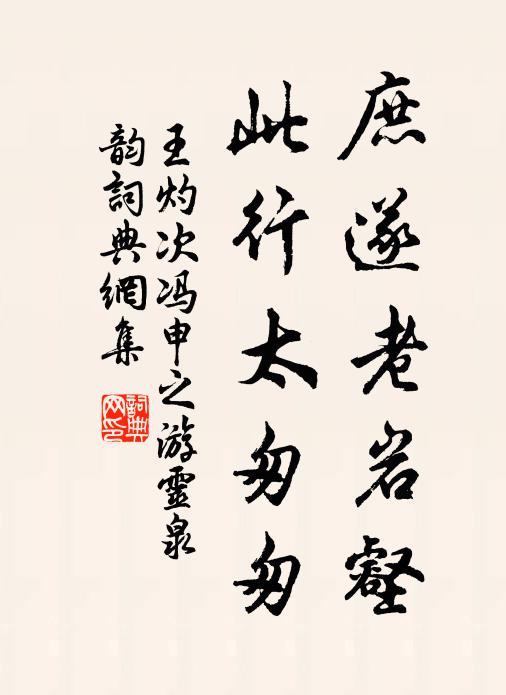 庶遂老岩壑
此行太匆匆
王灼次冯申之游靈泉
韵詞典網集
詞典
网印